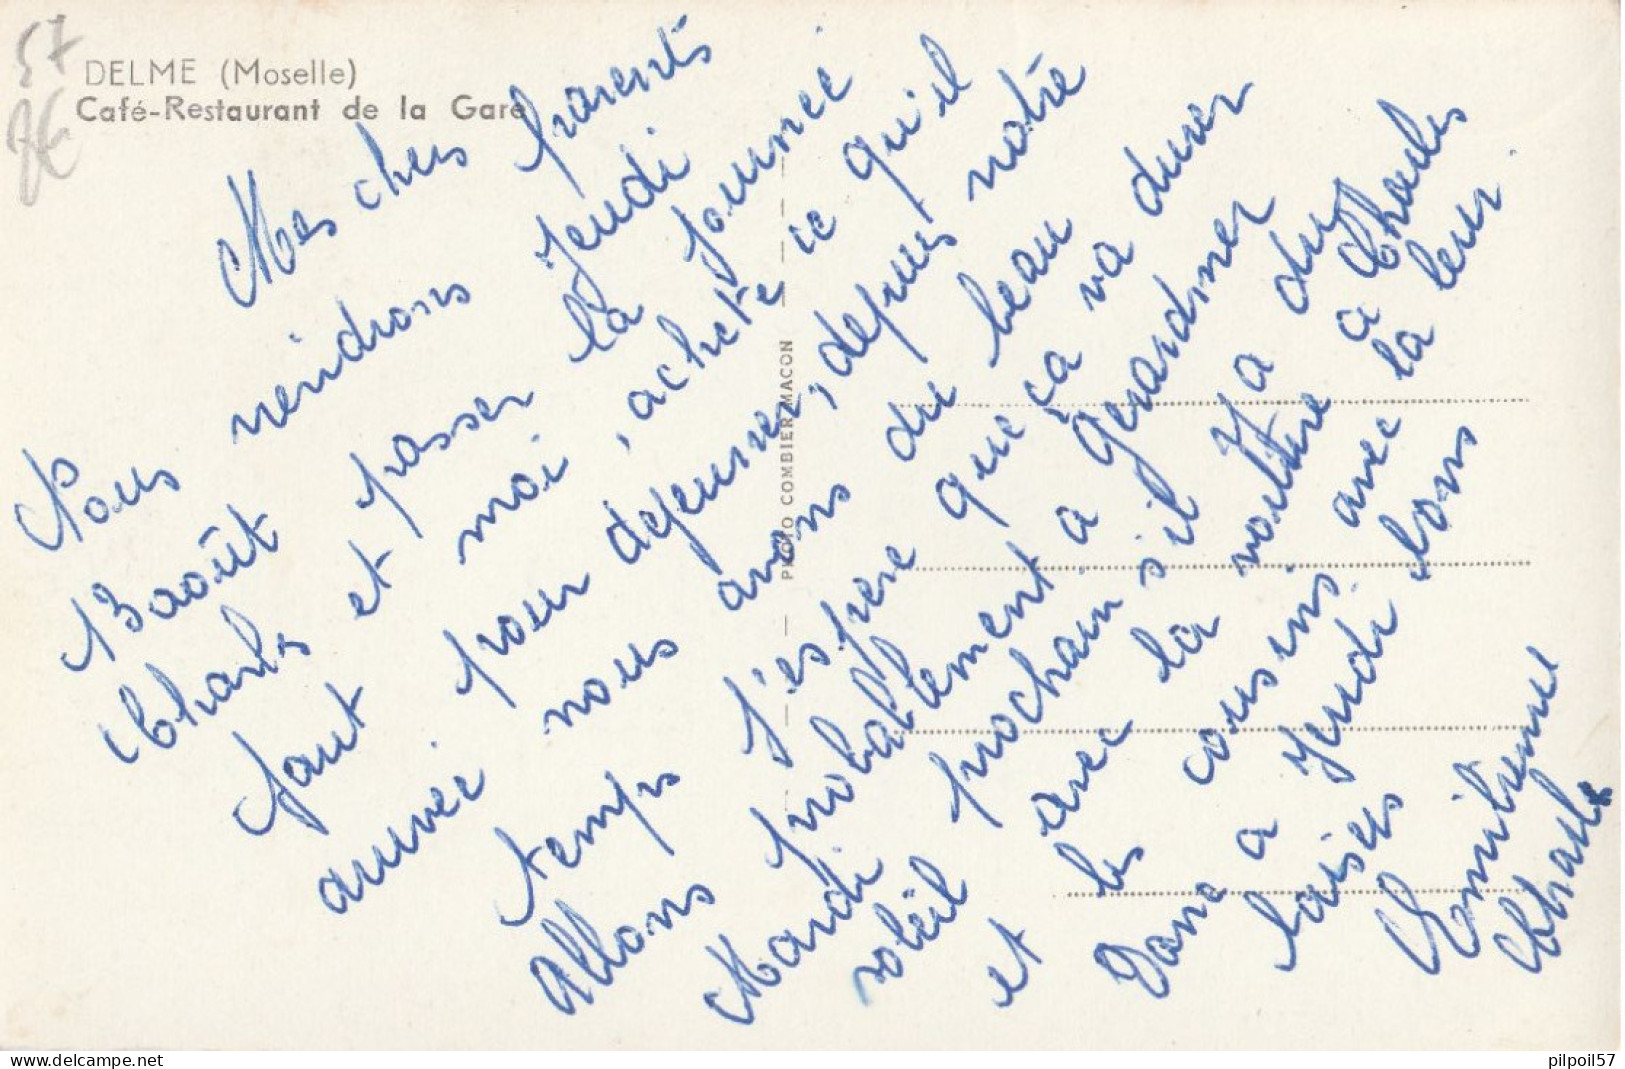 57
DELME (Moselle)
Café-Restaurant de la Gare
Mes chers parents
Nous viendrons jeudi
13 août passer la journée
Charles et moi, achete ic qu'il
faut pour dejeuner, depuis notre
arrivée nous avons du beau
temps j'espere que ça va durer
Allons probablement a Gerardmer
Mardi prochain s'il y a du
soleil avec la voiture a Charles
et les cousins avec la leur.
Donc a jeudi bons
baisers
Emilienne
Charles
PHOTO COMBIER MACON
www.delcampe.net
pilpoil57